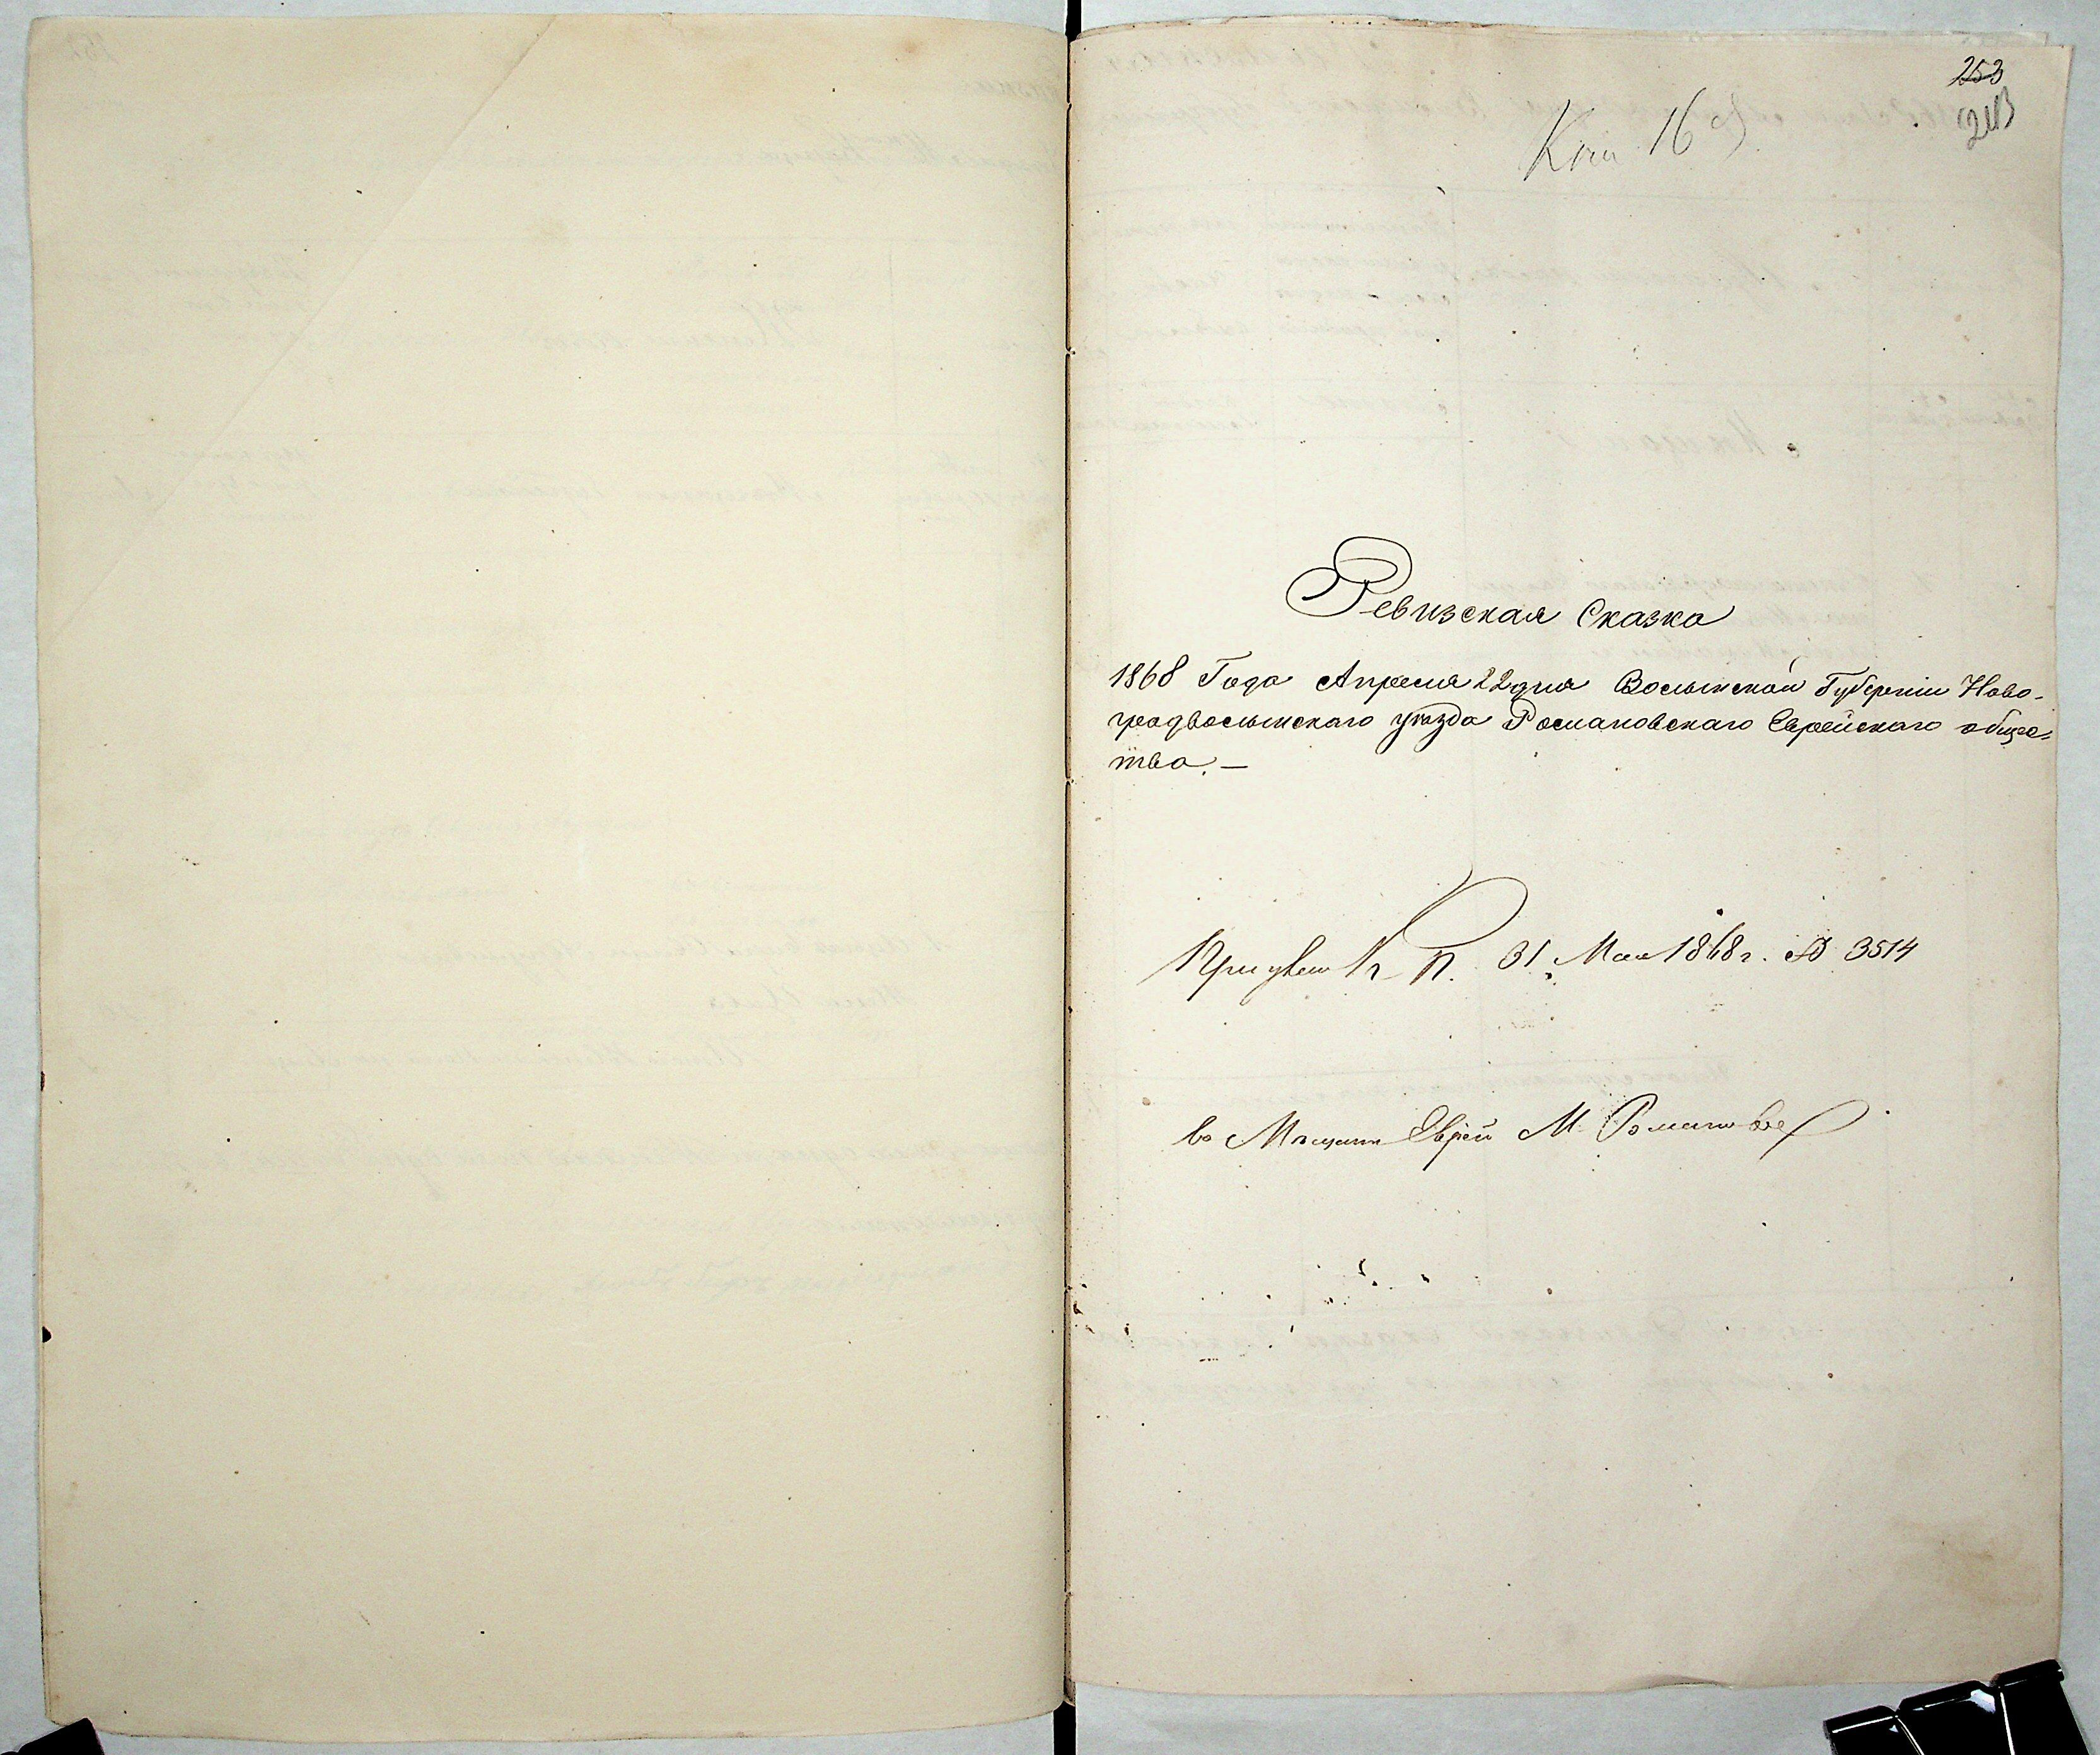 253
243
16
Ревизская Сказка
1868 Года Апреля 22 дня Волынской Губернии Ново-
градволынскаго уѣзда Романовскаго Еврейскаго общес-
тва. —
При указе К. П. 31 Мая 1868 г. № 3514
в Мещане Евреи М. Романова